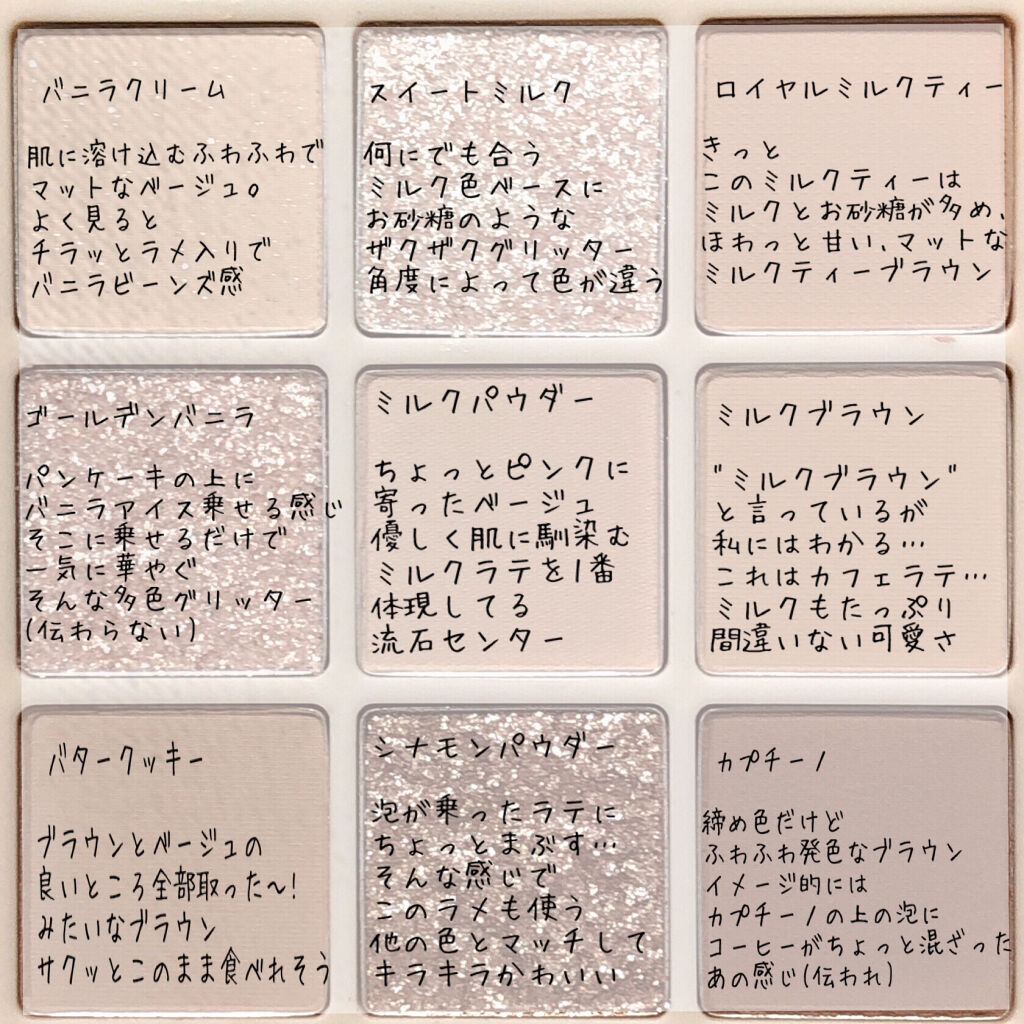 バニラクリーム
肌に溶け込むふわふわで
マットなベージュ。
よく見ると
チラッとラメ入りで
バニラビーンズ感
スイートミルク
何にでも合う
ミルク色ベースに
お砂糖のような
ザクザクグリッター
角度によって色が違う
ロイヤルミルクティー
きっと
このミルクティーは
ミルクとお砂糖が多め、
ほわっと甘い、マットな
ミルクティーブラウン
ゴールデンバニラ
パンケーキの上に
バニラアイス乗せる感じ
そこに乗せるだけで
一気に華やぐ
そんな多色グリッター
(伝わらない)
ミルクパウダー
ちょっとピンクに
寄ったベージュ
優しく肌に馴染む
ミルクラテを1番
体現してる
流石センター
ミルクブラウン
"ミルクブラウン"
と言っているが
私にはわかる…
これはカフェラテ…
ミルクもたっぷり
間違いない可愛さ
バタークッキー
ブラウンとベージュの
良いところ全部取った〜!
みたいなブラウン
サクッとこのまま食べれそう
シナモンパウダー
泡が乗ったラテに
ちょっとまぶす…
そんな感じで
このラメも使う
他の色とマッチして
キラキラかわいい
カプチーノ
締め色だけど
ふわふわ発色なブラウン
イメージ的には
カプチーノの上の泡に
コーヒーがちょっと混ざった
あの感じ(伝われ)